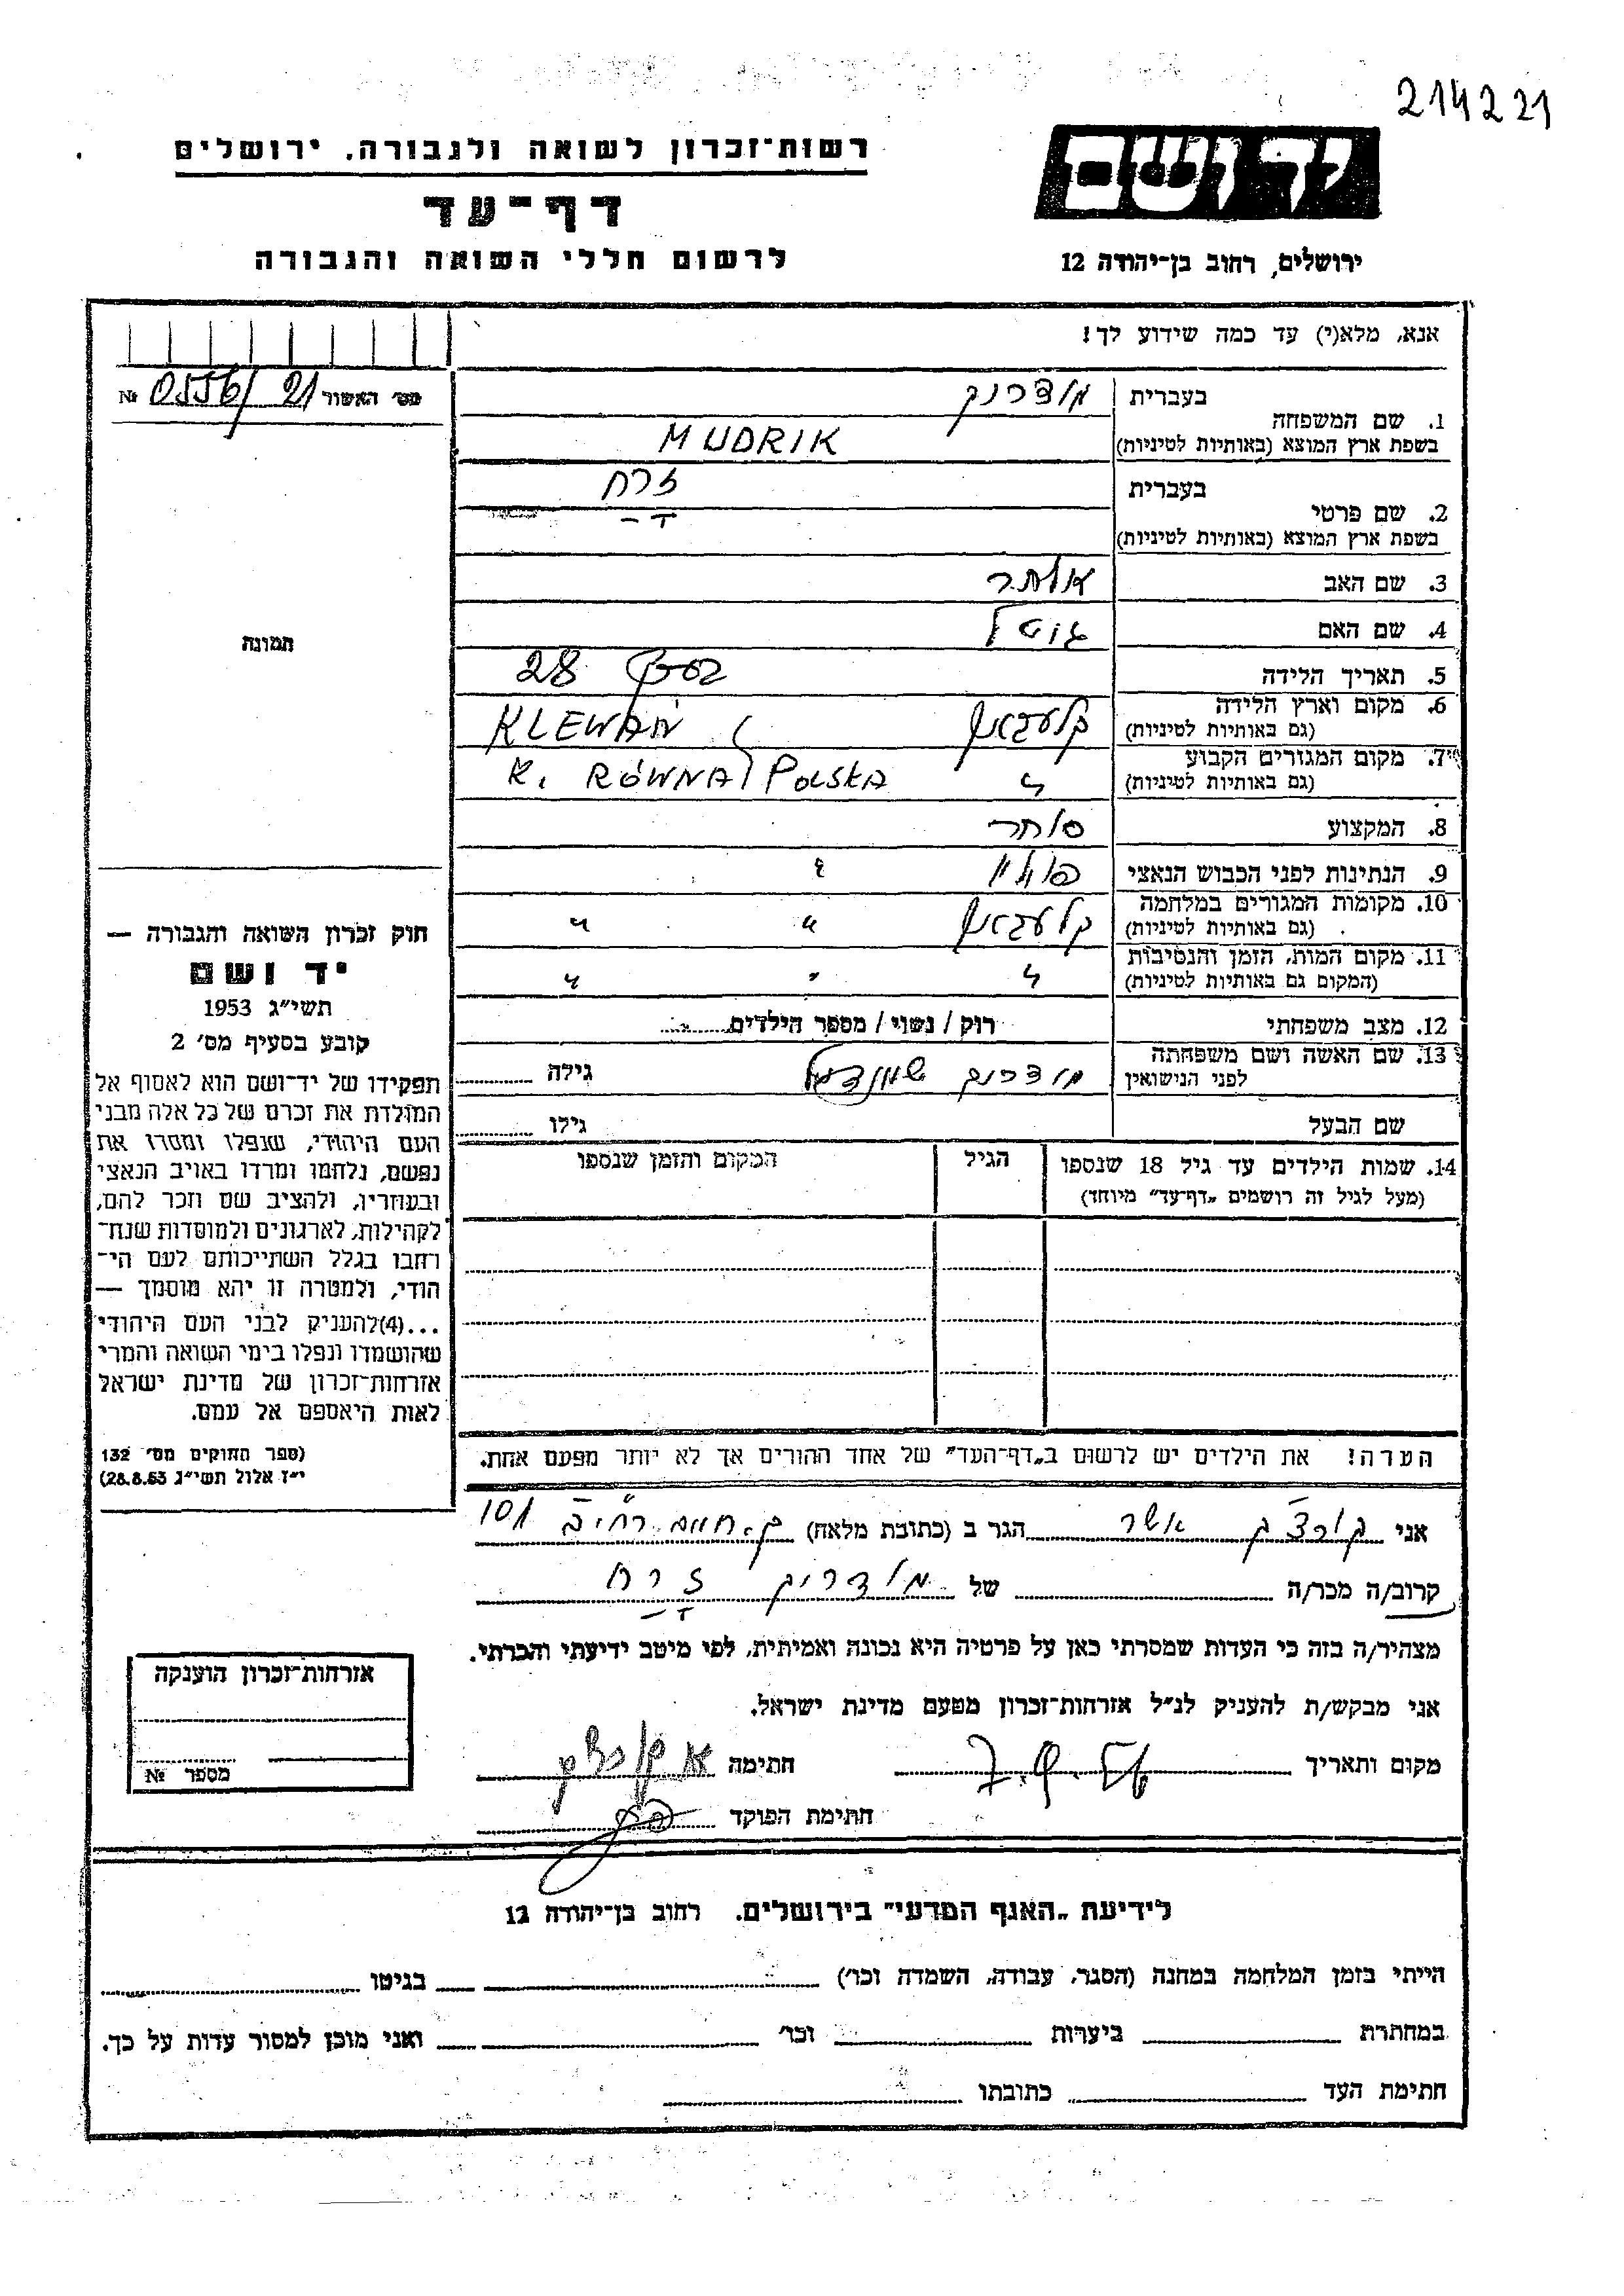 214221
רשות־זכרון לשואה ולגבורה. ירושלים
דף־עד
לרשום חללי השואה והגבורה
יד ושם
ירושלים, רחוב בן־יהודה 12
אנא, מלא(י) עד כמה שידוע לך!
מס׳ האשור 21 /0556 №
תמונה
1. שם המשפחה
בעברית מודריק
בשפת ארץ המוצא (באותיות לטיניות) MUDRIK
2. שם פרטי
בעברית זרח
בשפת ארץ המוצא (באותיות לטיניות)
3. שם האב
4. שם האם
5. תאריך הלידה 28
6. מקום וארץ הלידה KLEWAŃ
(גם באותיות לטיניות)
7. מקום המגורים הקבוע " K. RÓWNA POLSKA
(גם באותיות לטיניות)
8. המקצוע סוחר
9. הנתינות לפני הכבוש הנאצי פולין
10. מקומות המגורים במלחמה " "
(גם באותיות לטיניות)
11. מקום המות, הזמן והנסיבות " " "
(המקום גם באותיות לטיניות)
12. מצב משפחתי רוק / נשוי / מספר הילדים
13. שם האשה ושם משפחתה מודריק גילה
לפני הנישואין
שם הבעל גילו
14. שמות הילדים עד גיל 18 שנספו הגיל המקום והזמן שנספו
(מעל לגיל זה רושמים „דף־עד״ מיוחד)
חוק זכרון השואה והגבורה —
יד ושם
תשי״ג 1953
קובע בסעיף מס׳ 2
תפקידו של יד־ושם הוא לאסוף אל
המולדת את זכרם של כל אלה מבני
העם היהודי, שנפלו ומסרו את
נפשם, נלחמו ומרדו באויב הנאצי
ובעוזריו, ולהציב שם וזכר להם,
לקהילות, לארגונים ולמוסדות שנח־
רחבו בגלל השתייכותם לעם הי־
הודי, ולמטרה זו יהא מוסמך —
...(4)להעניק לבני העם היהודי
שהושמדו ונפלו בימי השואה והמרי
אזרחות־זכרון של מדינת ישראל
לאות היאספם אל עמם.
(ספר החוקים מס׳ 132
י״ז אלול תשי״ג 28.8.53)
הערה! את הילדים יש לרשום ב„דף־העד״ של אחד ההורים אך לא יותר מפעם אחת.
אני אשר הגר ב (כתובת מלאה) 101
קרוב/ה מכר/ה של מודריק זרח
מצהיר/ה בזה כי העדות שמסרתי כאן על פרטיה היא נכונה ואמיתית, לפי מיטב ידיעתי והכרתי.
אני מבקש/ת להעניק לנ״ל אזרחות־זכרון מטעם מדינת ישראל.
מקום ותאריך חתימה
חתימת הפוקד
אזרחות־זכרון הוענקה
מספר №
לידיעת „האגף המדעי״ בירושלים. רחוב בן־יהודה 12
הייתי בזמן המלחמה במחנה (הסגר, עבודה, השמדה וכו׳) בגיטו
במחתרת ביערות וכו׳ ואני מוכן למסור עדות על כך.
חתימת העד כתובתו